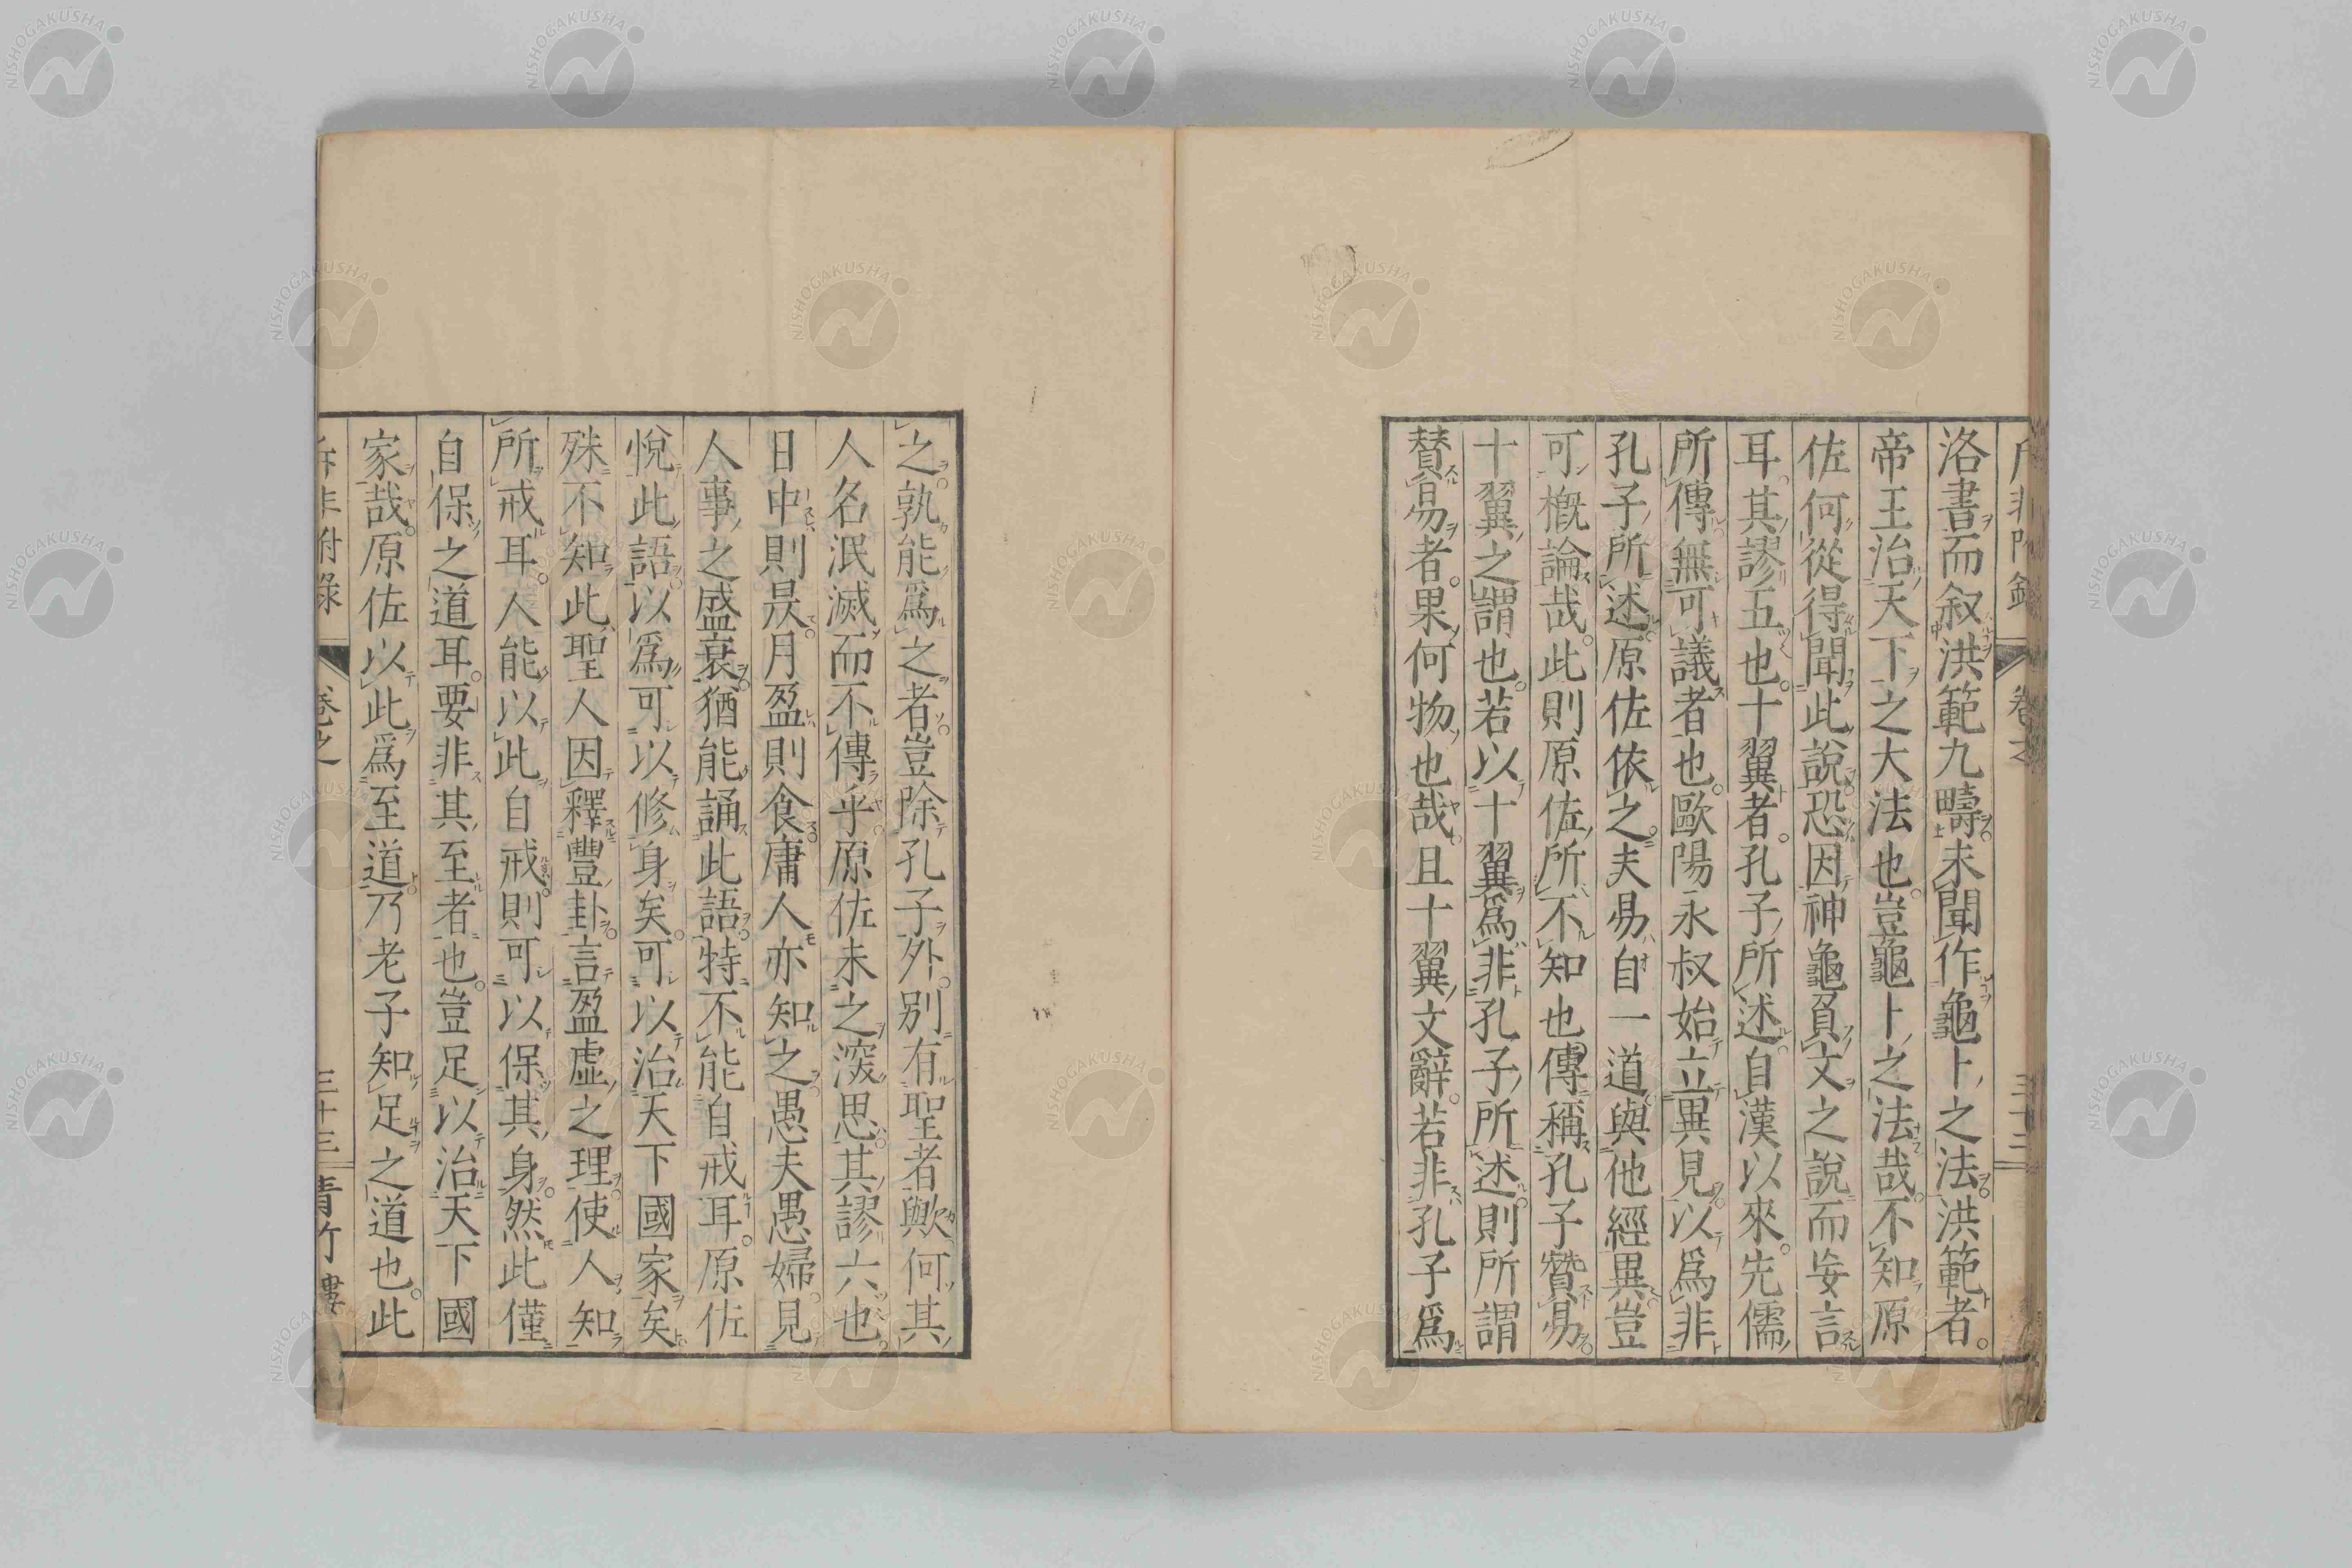 洛書而叙洪範九疇未聞作龜卜之法洪範者。
帝王治天下之大法也。豈龜卜之法哉。不知原
佐何從得聞此說恐因神龜負文之說而妄言
耳。其謬五也。十翼者。孔子所述。自漢以來。先儒
所傳無可議者也。歐陽永叔始立異見以爲非
孔子所述。原佐依之。夫易自一道與他經異。豈
可概論哉。此則原佐所不知也傳稱孔子贊易。
十翼之謂也。若以十翼爲非孔子所述則所謂
贊易者。果何物也哉。且十翼文辭。若非孔子爲
之。孰能爲之者。豈除孔子外。別有聖者歟何其
人名泯滅而不傳乎。原佐未之深思。其謬六也。
日中則昃。月盈則食。庸人亦知之愚夫愚婦見
人事之盛衰。猶能誦此語。特不能自戒耳。原佐
悅此語。以爲可以修身矣。可以治天下國家矣。
殊不知此聖人因釋豐卦。言盈虛之理。使人知
所戒耳。人能以此自戒。則可以保其身。然此僅
自保之道耳。要非其至者也。豈足以治天下國
家哉。原佐以此爲至道。乃老子知足之道也。此
斥非附錄 卷之 三十三 青竹樓